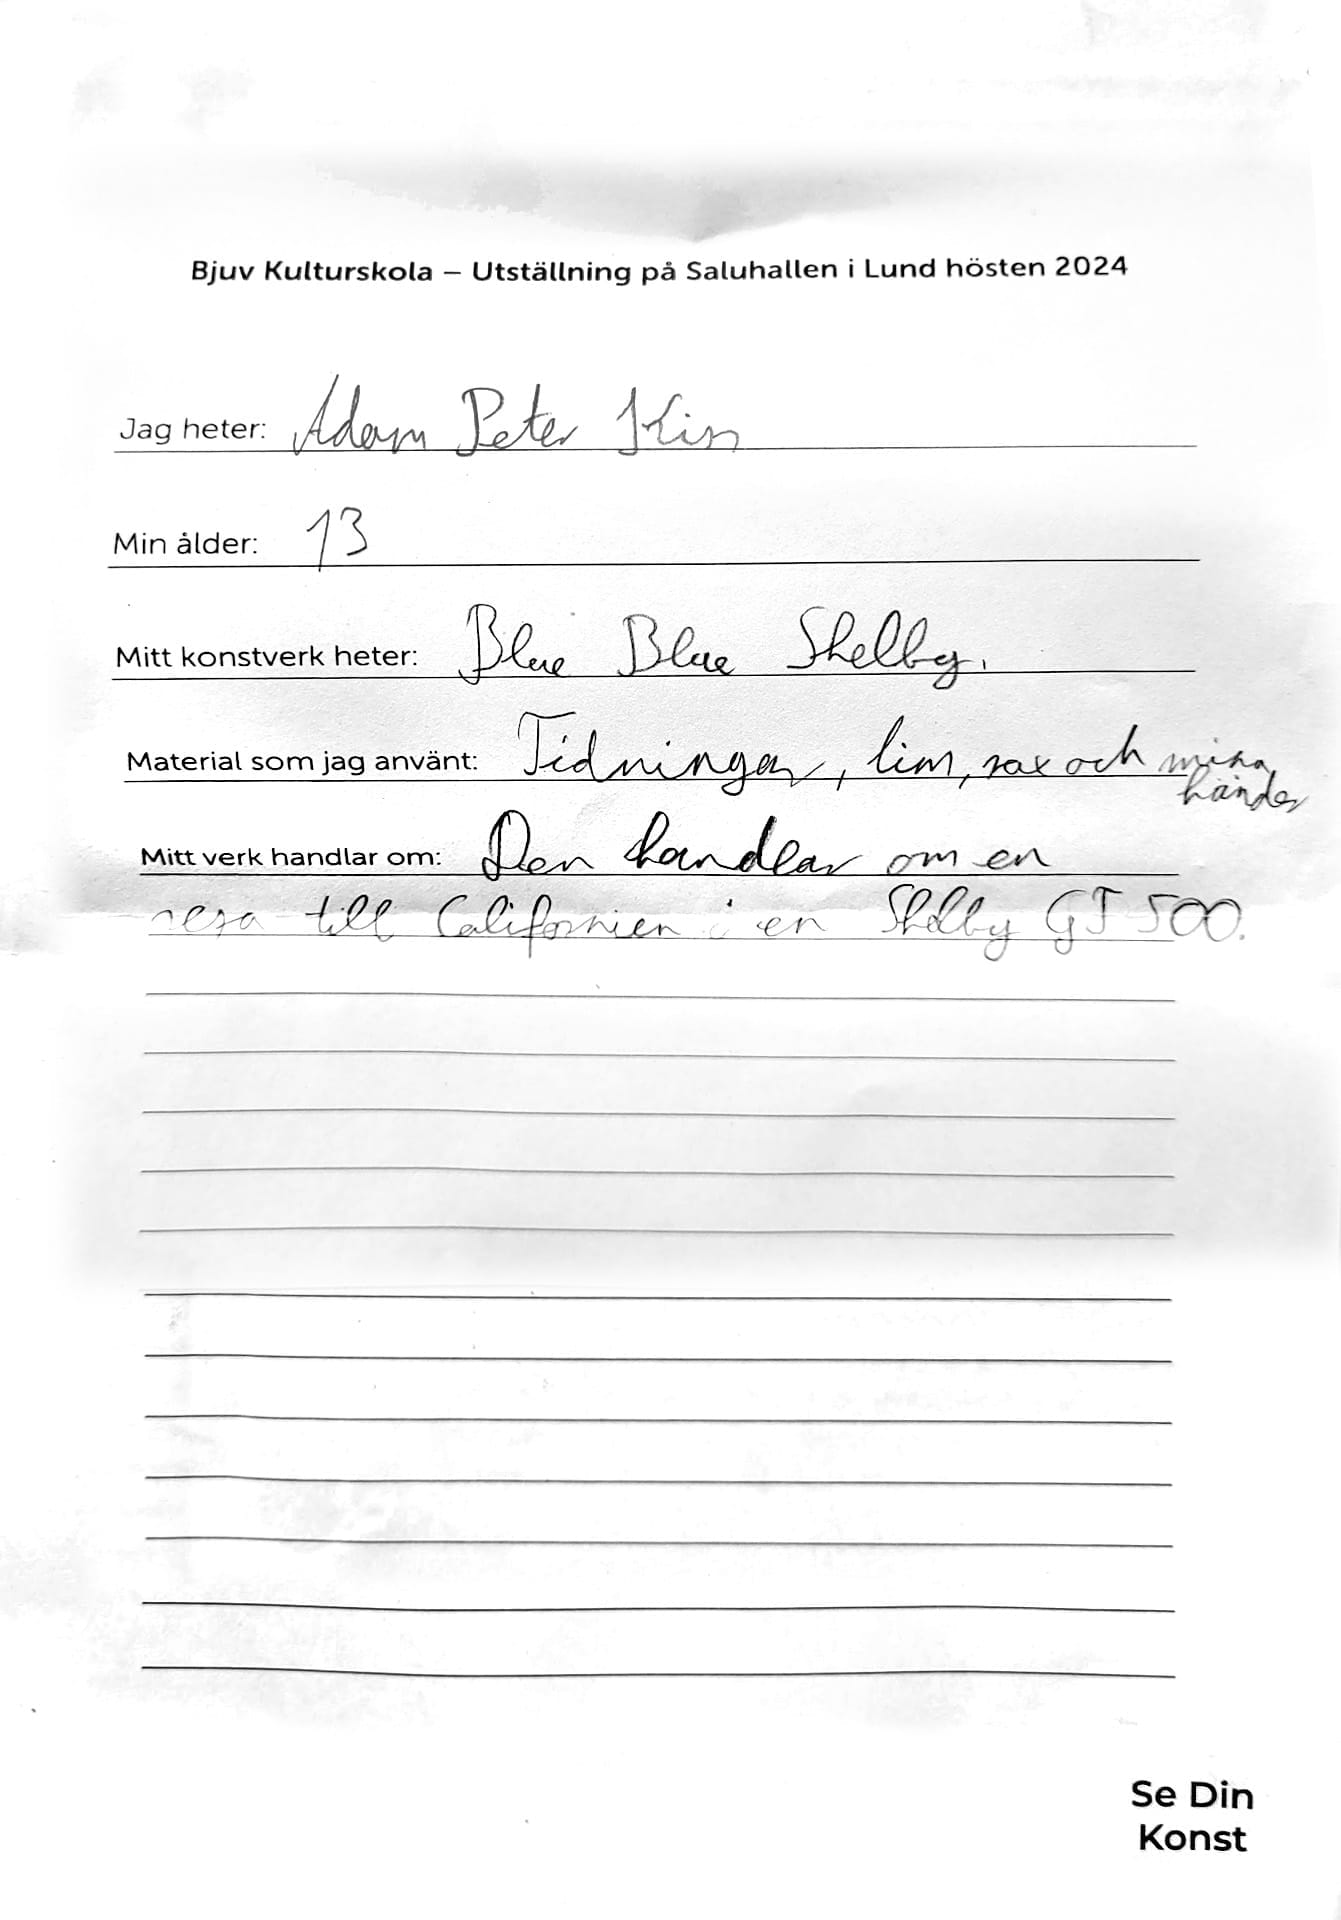 Bjuv Kulturskola – Utställning på Saluhallen i Lund hösten 2024
Jag heter: Adam Peter Kis
Min ålder: 13
Mitt konstverk heter: Blue Blue Shelby.
Material som jag använt: Tidningar, lim, sax och mina
händer
Mitt verk handlar om: Den handlar om en
resa till Californien i en Shelby GT 500.
Se Din
Konst